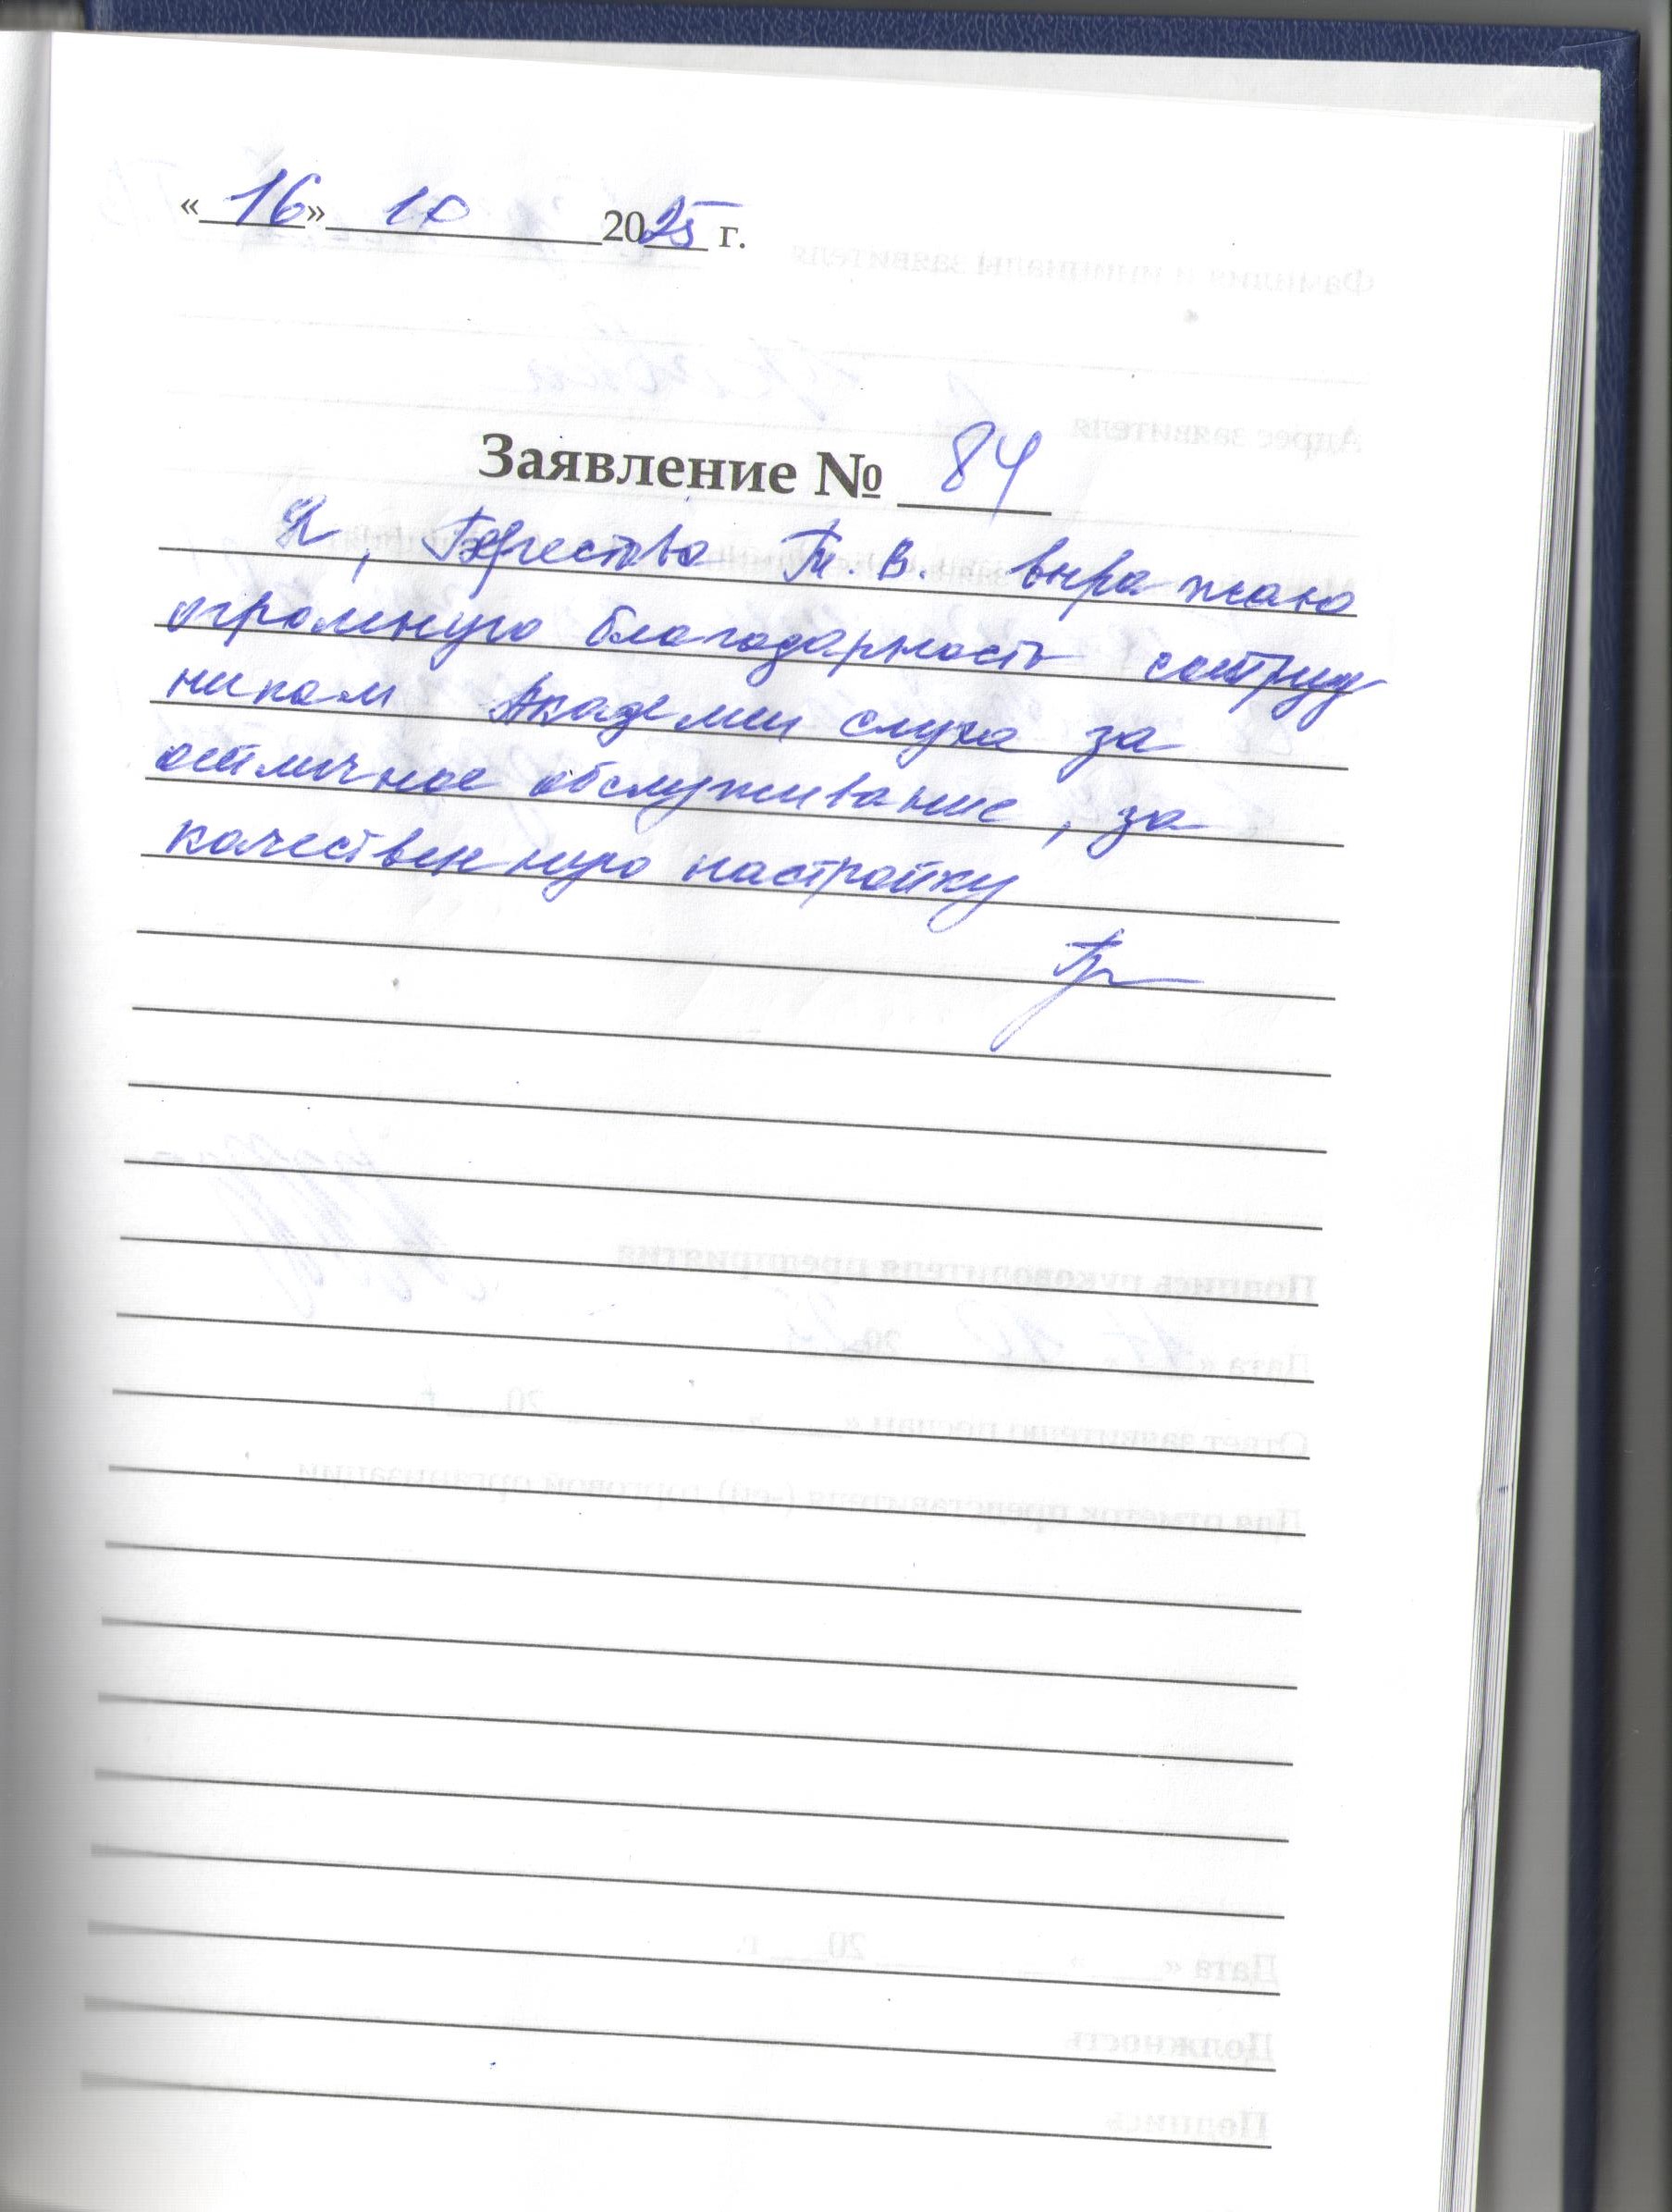 «16» 10 2025 г.
Заявление № 84
Я, Т. В. выражаю
огромную благодарность сотруд
никам Академии слуха за
отличное обслуживание, за
качественную настройку